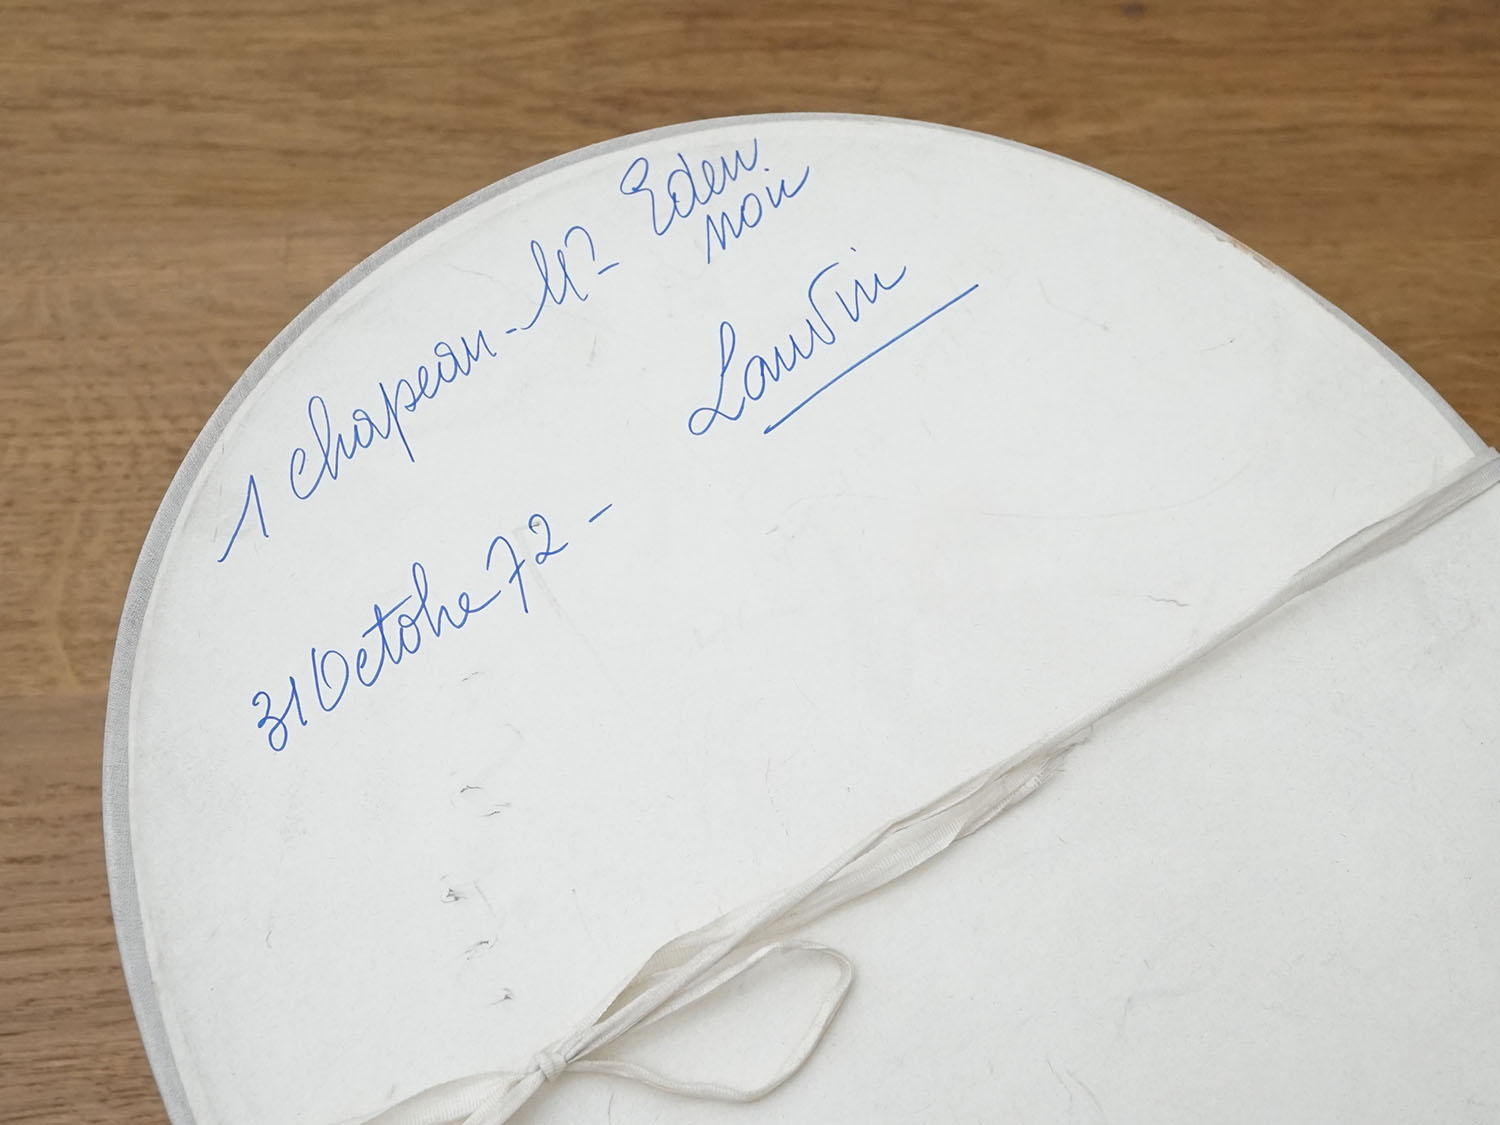 1 chapeau - Mr Eden
noir
Lanvin
31 Octobre 72 -